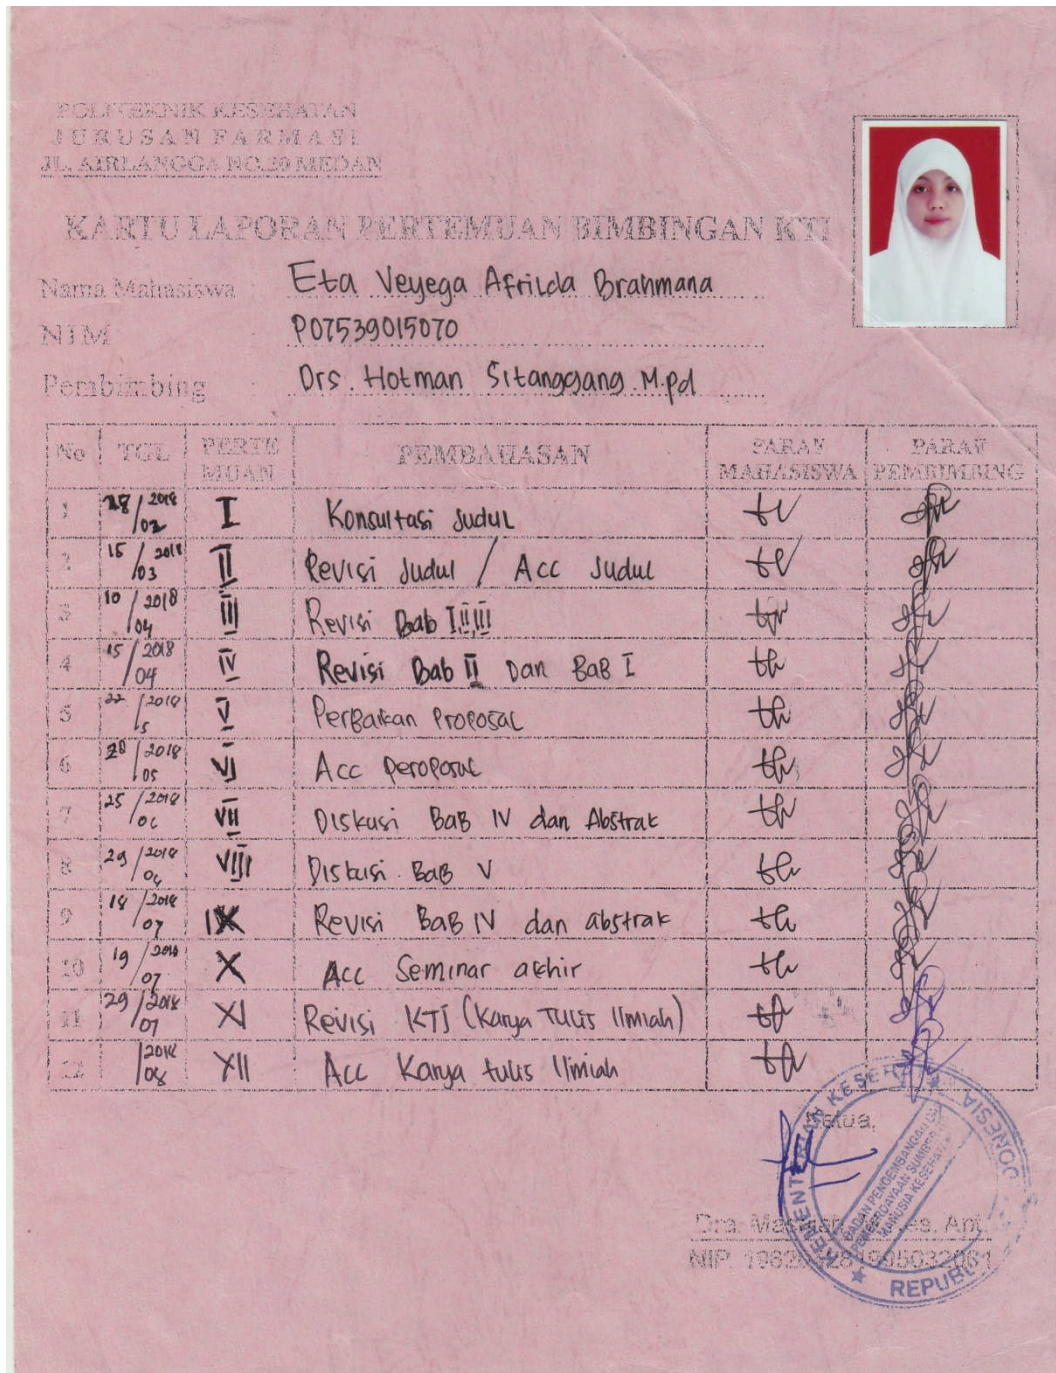 POLITEKNIK KESEHATAN
JURUSAN FARMASI
JL. AIRLANGGA NO.20 MEDAN
KARTU LAPORAN PERTEMUAN BIMBINGAN KTI
Nama Mahasiswa : Eta Veyega Afrilda Brahmana
NIM : P07539015070
Pembimbing : Drs. Hotman Sitanggang. M.pd
No TGL PERTEMUAN PEMBAHASAN PARAF MAHASISWA PARAF PEMBIMBING
1 28/02 2018 I Konsultasi Judul
2 15/03 2018 II Revisi Judul / Acc Judul
3 10/04 2018 III Revisi Bab I,II,III
4 15/04 2018 IV Revisi Bab II Dan BaB I
5 22/5 2018 V Perbaikan Proposal
6 28/05 2018 VI Acc peroposal
7 25/ 2018 VII Diskusi BaB IV dan Abstrak
8 29/ 2018 VIII Diskusi BaB V
9 18/07 2018 IX Revisi BaB IV dan abstrak
10 19/07 2018 X Acc Seminar akhir
11 29/07 2018 XI Revisi KTI (Karya Tulis Ilmiah)
12 /08 2018 XII Acc Karya tulis Ilmiah
Ketua,
KEMENTERIAN KESEHATAN
REPUBLIK INDONESIA
BADAN PENGEMBANGAN
PEMBERDAYAAN SUMBER
MANUSIA KESEHATAN
Dra. Apt
NIP.